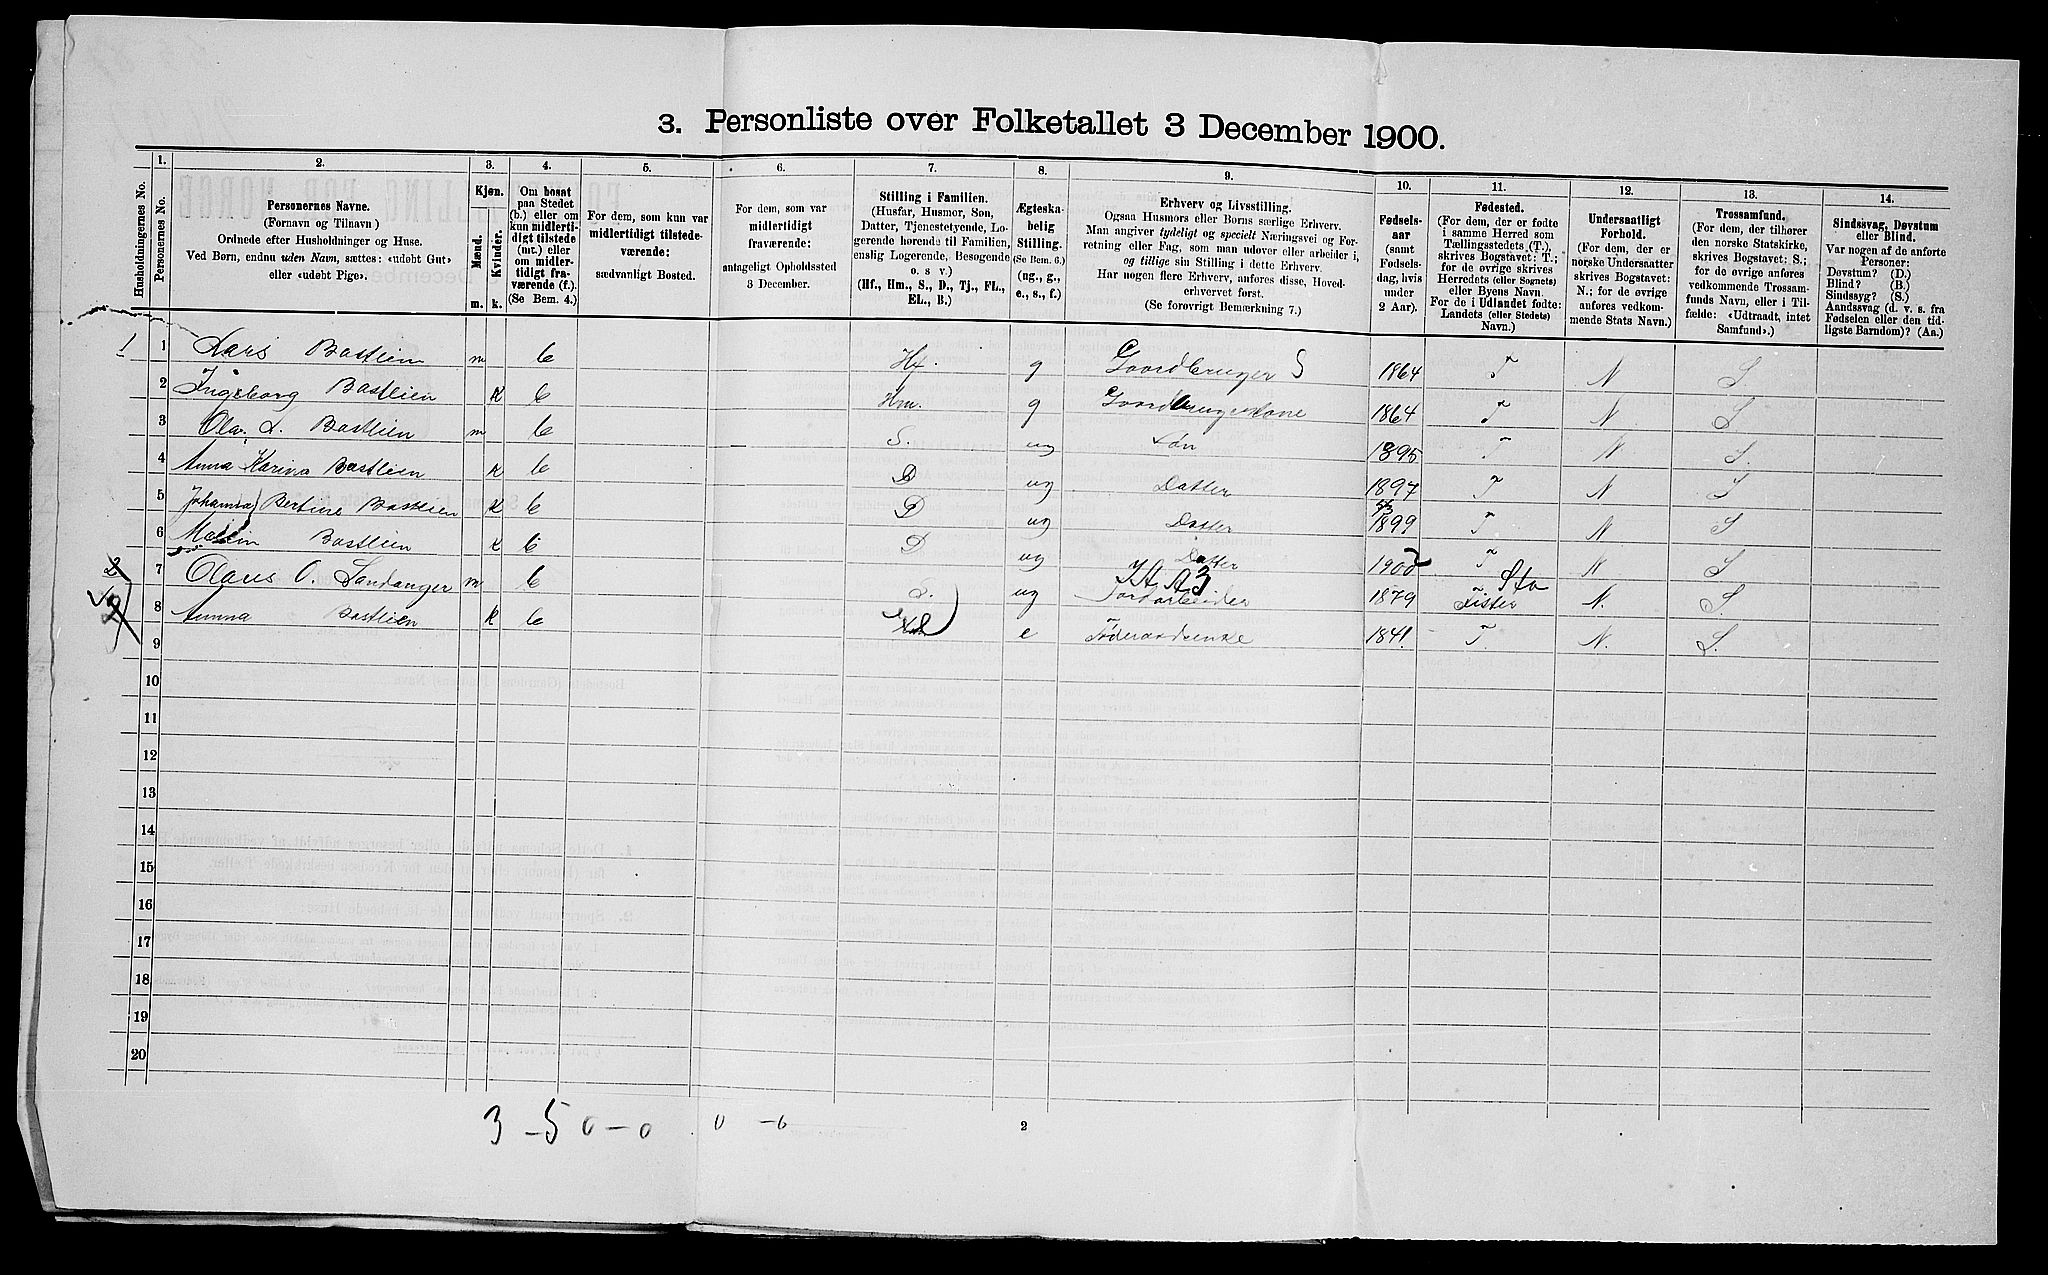 3. Personliste over Folketallet 3 December 1900.
1. 2. 3. 4. 5. 6. 7. 8. 9. 10. 11. 12. 13. 14.
Husholdningernes No.
Personernes No.
Personernes Navne.
(Fornavn og Tilnavn)
Ordnede efter Husholdninger og Huse.
Ved Børn, endnu uden Navn, sættes: «udøbt Gut»
eller «udøbt Pige».
Kjøn.
Mænd.
Kvinder.
m. k.
Om bosat
paa Stedet
(b.) eller om
kun midlerti-
digt tilstede
(mt.) eller
om midler-
tidigt fra-
værende (f.).
(Se Bem. 4.)
For dem, som kun var
midlertidigt tilstede-
værende:
sædvanligt Bosted.
For dem, som var
midlertidigt
fraværende:
antageligt Opholdssted
3 December.
Stilling i Familien.
(Husfar, Husmor, Søn,
Datter, Tjenestetyende, Lo-
gerende hørende til Familien,
enslig Logerende, Besøgende
o. s v.)
(Hf., Hm., S., D., Tj., FL.,
EL., B.)
Ægteska-
belig
Stilling.
(Se Bem. 6.)
(ug., g.,
e., s., f.)
Erhverv og Livsstilling.
Ogsaa Husmors eller Børns særlige Erhverv.
Man angiver tydeligt og specielt Næringsvei og For-
retning eller Fag, som man udøver eller arbeider i,
og tillige sin Stilling i dette Erhverv.
Har nogen flere Erhverv, anføres disse, Hoved-
erhvervet først.
(Se forøvrigt Bemærkning 7.)
Fødsels-
aar
(samt
Fødsels-
dag, hvis
under
2 Aar).
Fødested.
(For dem, der er fødte
i samme Herred som
Tællingsstedets (T.),
skrives Bogstavet: T.;
for de øvrige skrives
Herredets (eller Sognets)
eller Byens Navn.
For de i Udlandet fødte:
Landets (eller Stedets)
Navn.)
Undersaatligt
Forhold.
(For dem, der er
norske Undersaatter
skrives Bogstavet:
N.; for de øvrige
anføres vedkom-
mende Stats Navn.)
Trossamfund.
(For dem, der tilhører
den norske Statskirke,
skrives Bogstavet: S.;
for de øvrige anføres
vedkommende Trossam-
funds Navn, eller i Til-
fælde: «Udtraadt, intet
Samfund».)
Sindssvag, Døvstum
eller Blind.
Var nogen af de anførte
Personer:
Døvstum? (D.)
Blind? (B.)
Sindssyg? (S.)
Aandssvag (d. v. s. fra
Fødselen eller den tid-
ligste Barndom)? (Aa.)
1 1 Lars Bastlien m b Hf. g Gaardbruger S 1864 T N S.
2 Ingeborg Bastlien k b Hm. g Gaardbrugerkone 1864 T N. S.
3 Olav. L. Bastlien m b S. ug Søn 1895 T N. S.
4 Anna Karina Bastlien k b D ug Datter 1897 T N S
5 Johanna Bertine Bastlien k b D ug Datter 1899 T N. S
6 Malin Bastlien k b D ug Datter 1900 T N. S
7 Olaus O. Sandanger m b ug Jordarbeider 1879 Fister N. S
8 Anna Bastlien k b e Føderaadsenke 1841. T. N. S.
9
10
11
12
13
14
15
16
17
18
19
20
3 - 5 0 - 0 0 - 6
2